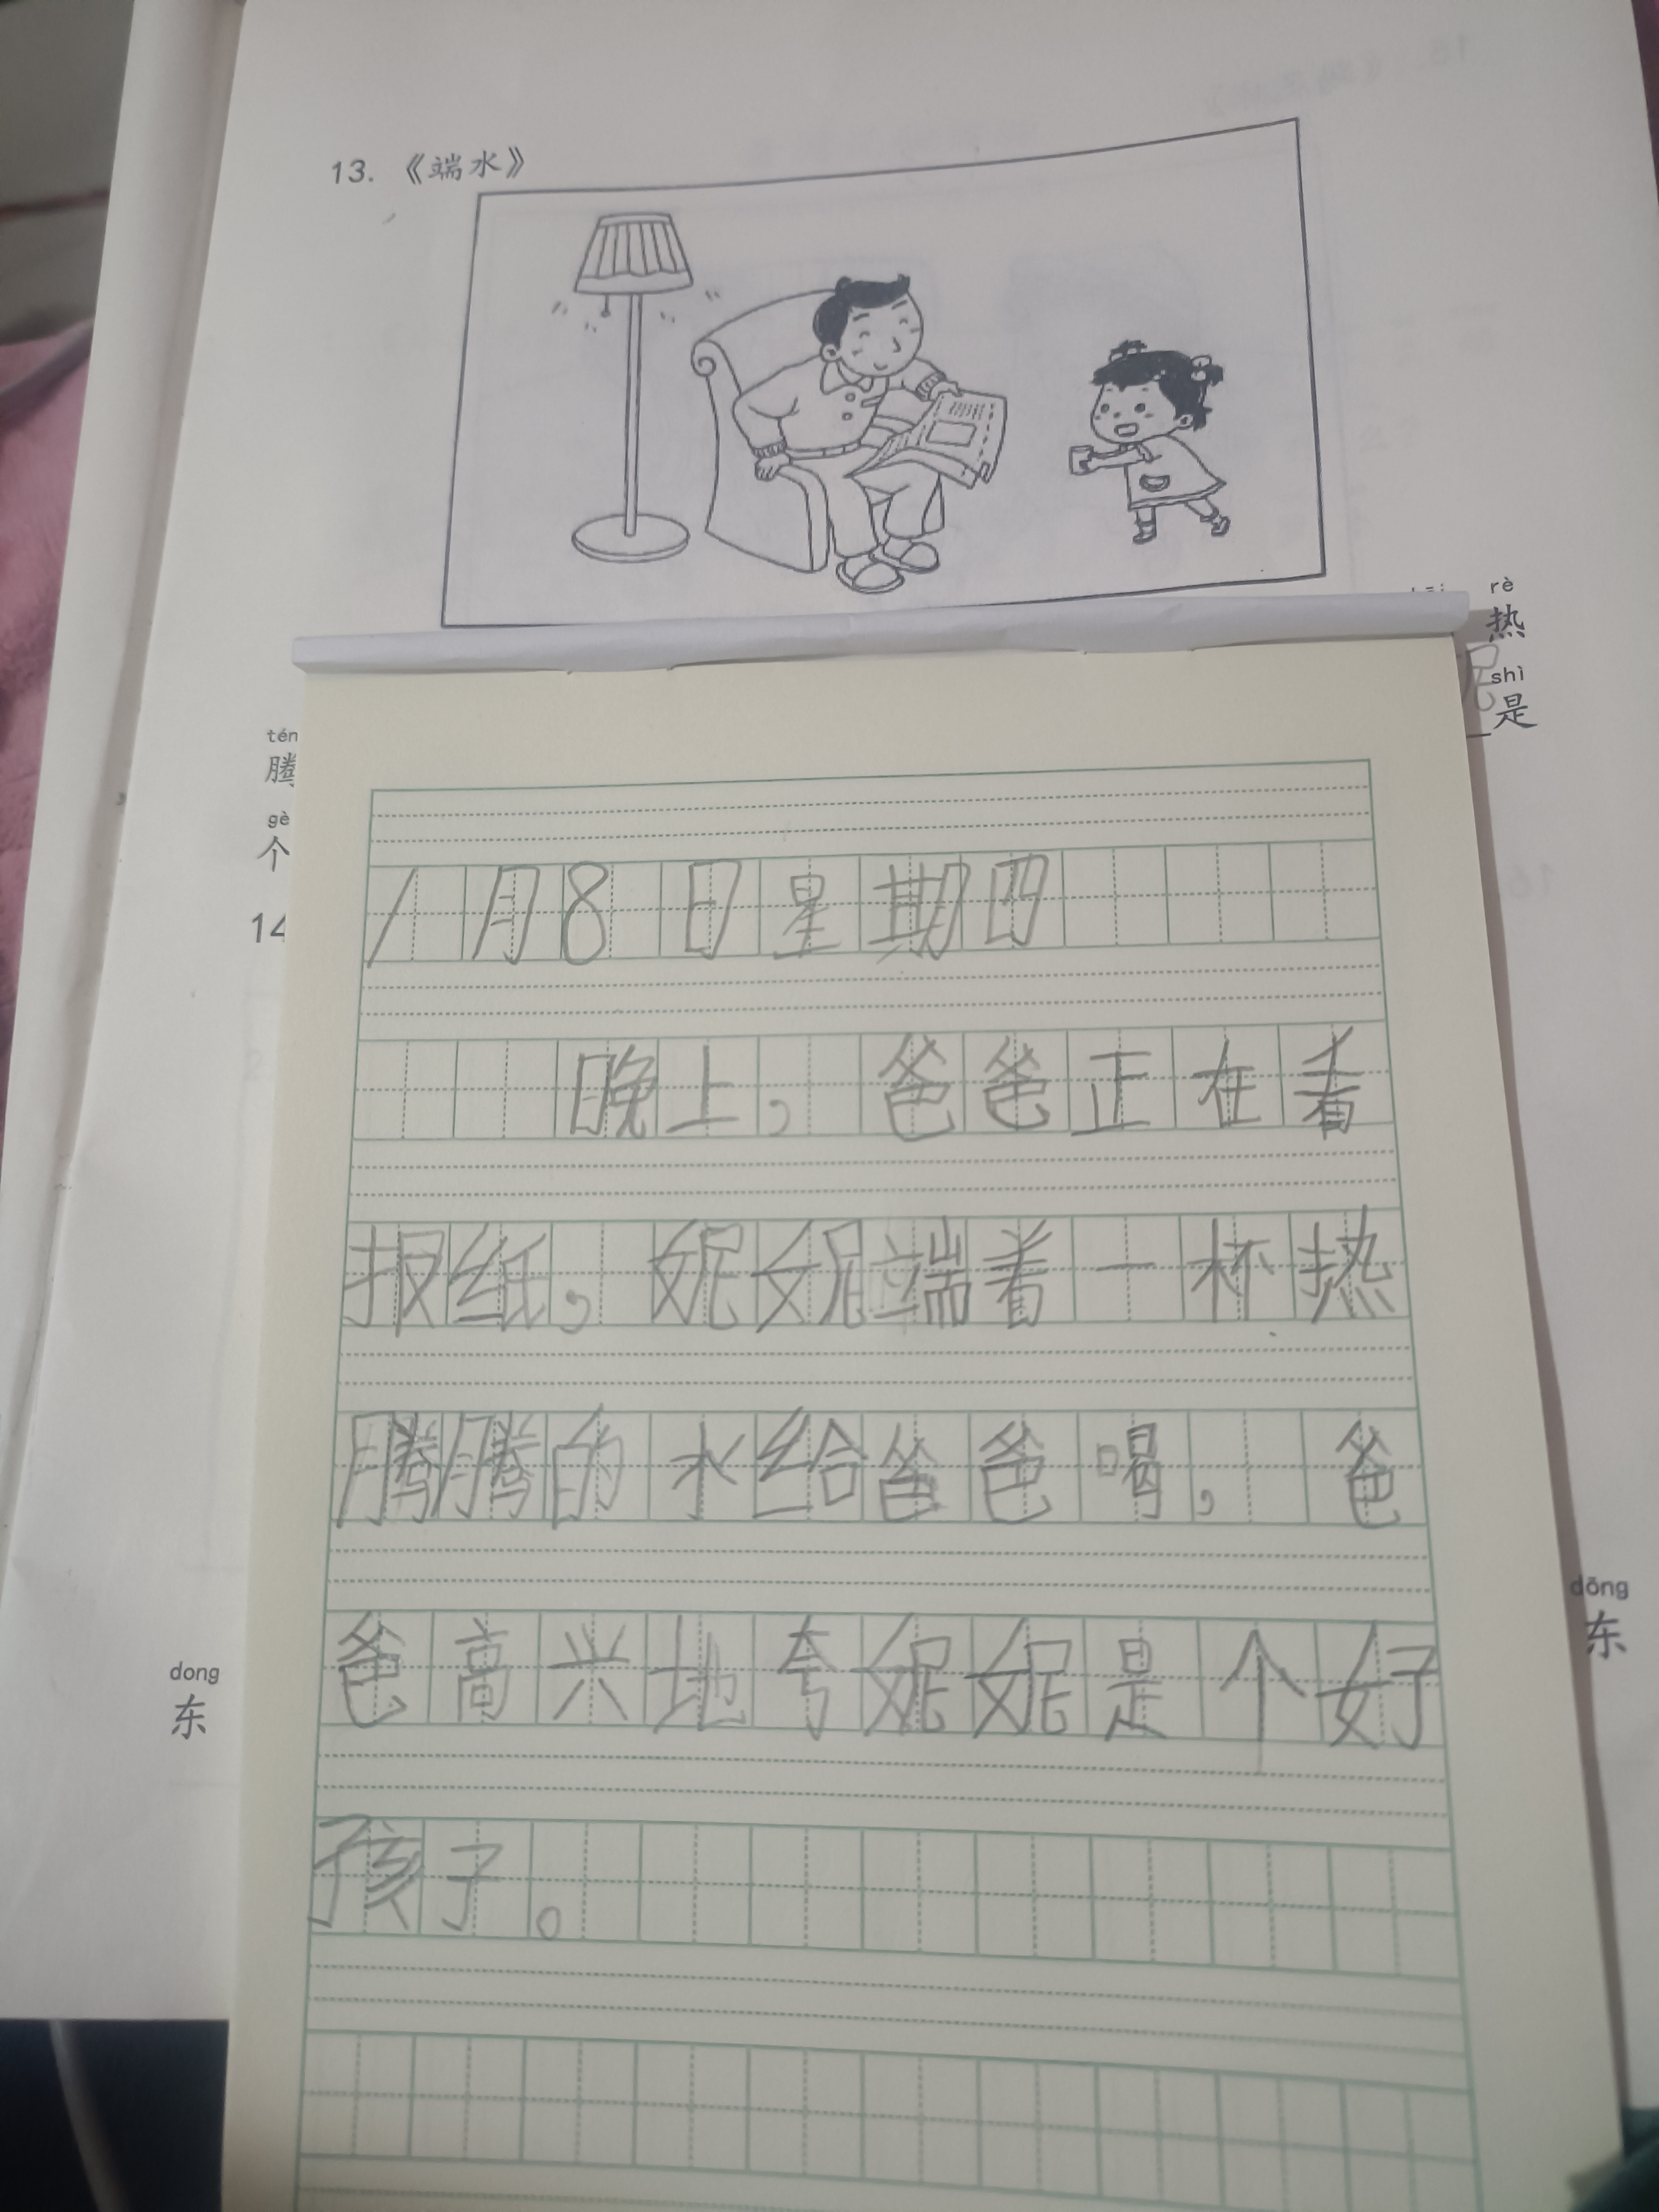 13. 《端水》
rè
热
shì
是
tén
腾
gè
个
14
1月8日星期四
晚上，爸爸正在看
报纸，妮妮端着一杯热
腾腾的水给爸爸喝，爸
爸高兴地夸妮妮是个好
孩子。
dōng
东
dong
东